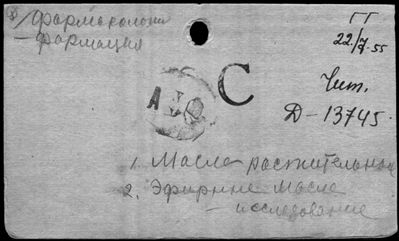 8/ Фармакология
- фармация
ГГ
22/7-55
С
Чит.
Д-13745
1. Масла растительные
2. Эфирные масла
- исследование